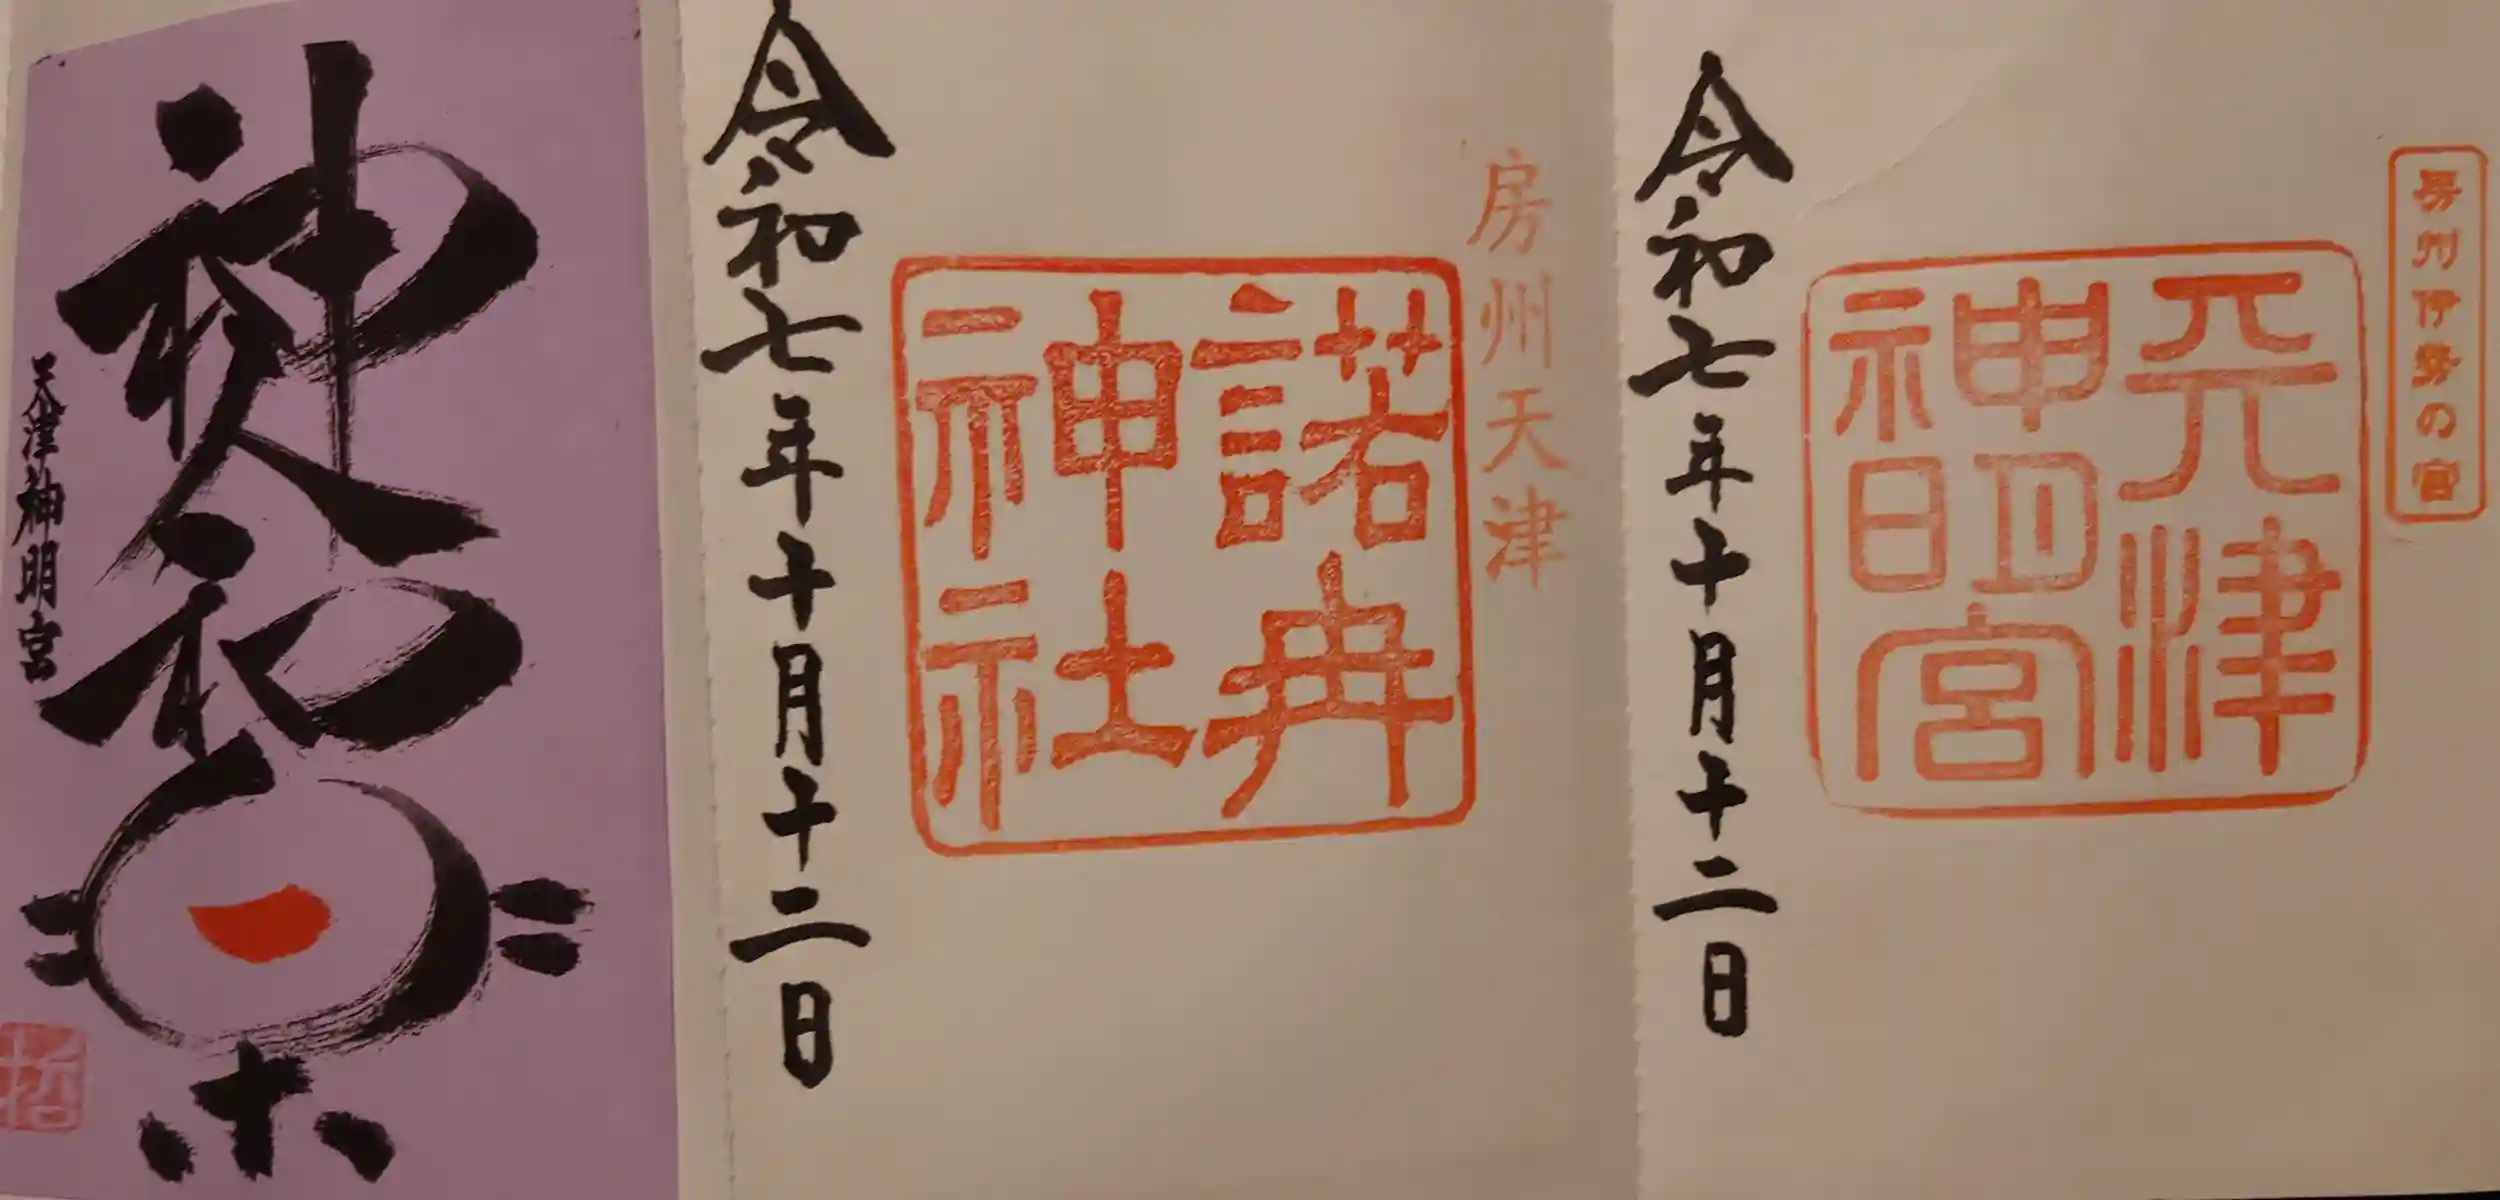 房州伊勢の宮
天津
神明宮
令和七年十月十二日
房州天津
諾冉
神社
令和七年十月十二日
神人和楽
天津神明宮
哲